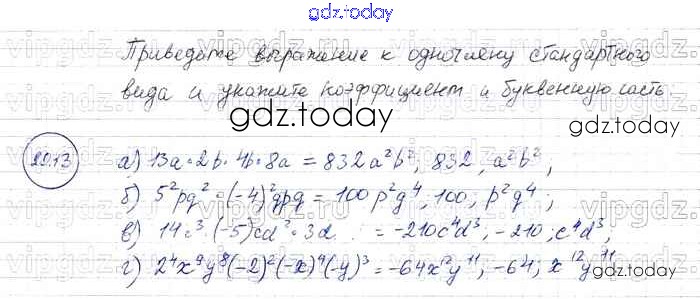 gdz.today
Приведите выражение к одночлену стандартного
вида и укажите коэффициент и буквенную часть
gdz.today
20.13
а) 13a·2b·4b·8a = 832a²b²; 832; a²b²;
б) 5²pq²·(-4)²qpq = 100p²q⁴; 100; p²q⁴;
в) 14c³·(-5)cd²·3d = -210c⁴d³; -210; c⁴d³;
г) 2⁴x⁹y⁸(-2)²(-x)⁴(-y)³ = -64x¹²y¹¹; -64; x¹²y¹¹
gdz.today